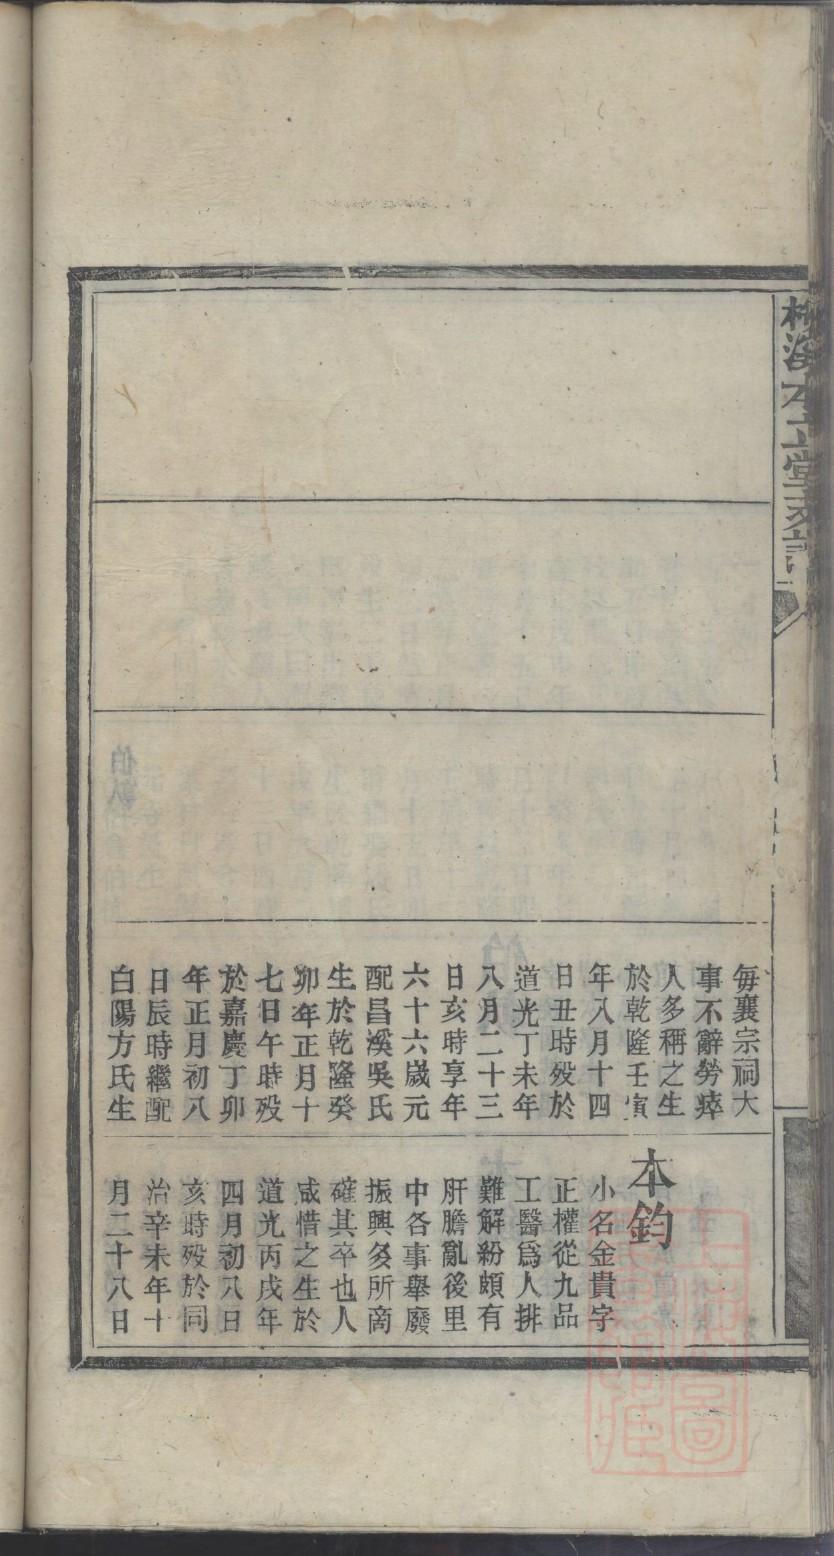 本立堂支譜
每襄宗祠大
事不辭勞瘁
人多稱之生
於乾隆壬寅
年八月十四
日丑時殁於
道光丁未年
八月二十三
日亥時享年
六十六歲元
配昌溪吳氏
生於乾隆癸
卯年正月十
七日午時殁
於嘉慶丁卯
年正月初八
日辰時繼配
白陽方氏生
本鈞
小名金貴字
正權從九品
工醫爲人排
難解紛頗有
肝膽亂後里
中各事舉廢
振興多所商
確其卒也人
咸惜之生於
道光丙戌年
四月初八日
亥時殁於同
治辛未年十
月二十八日